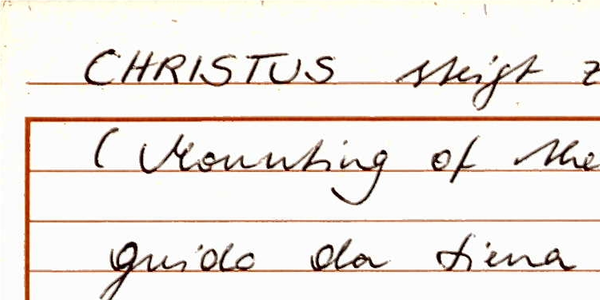 CHRISTUS steigt z
(Mounting of the
guido da siena